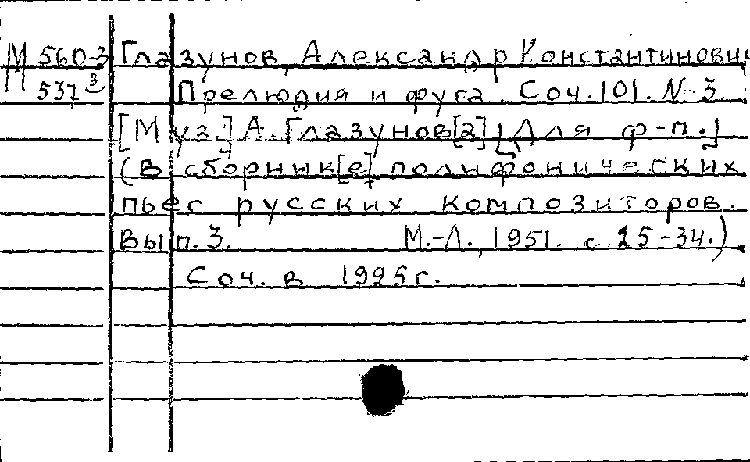 М 560-3 Глазунов, Александр Константинович
537 3 Прелюдия и фуга. Соч. 101. N-3
[Муз.] А. Глазунов[а] [Для ф-п.]
(В сборник[е] полифонических
пьес русских композиторов.
Вып. 3. М.-Л., 1951. с 25-34.)
Соч. в 1925 г.